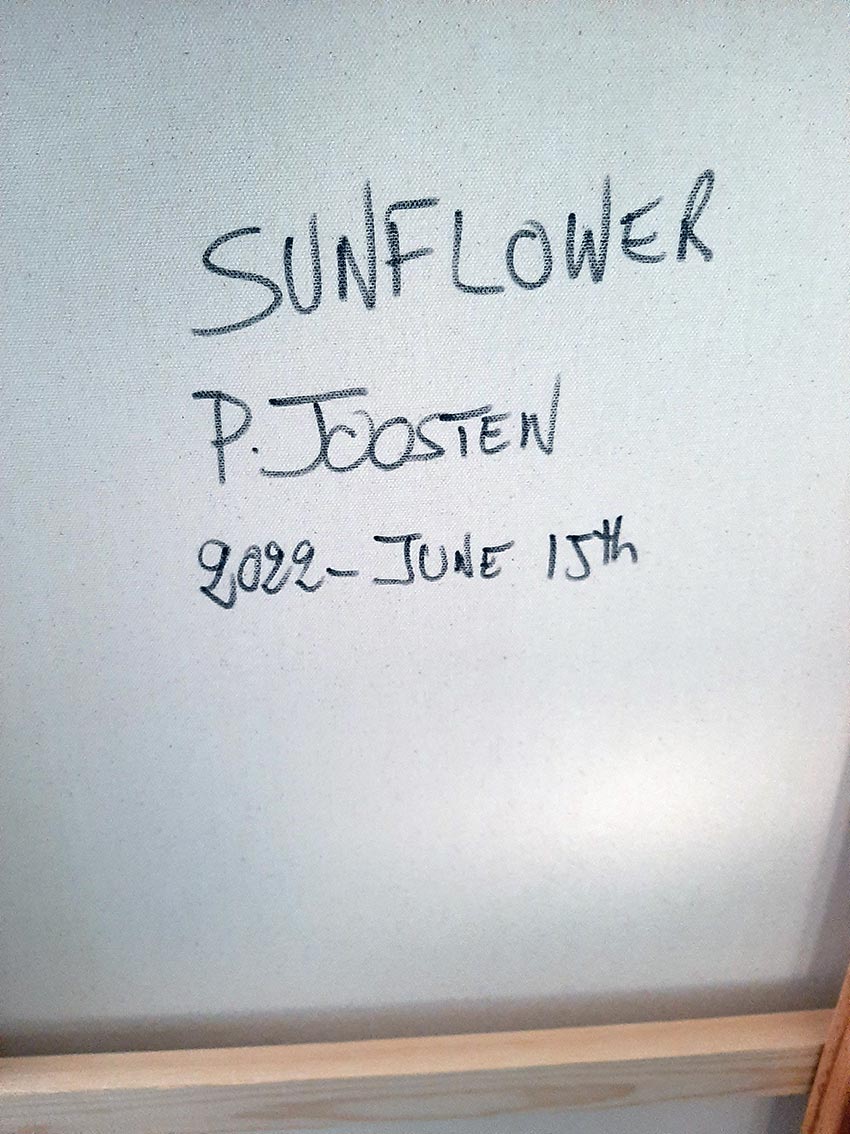 SUNFLOWER
P. JOOSTEN
2022 - JUNE 15th